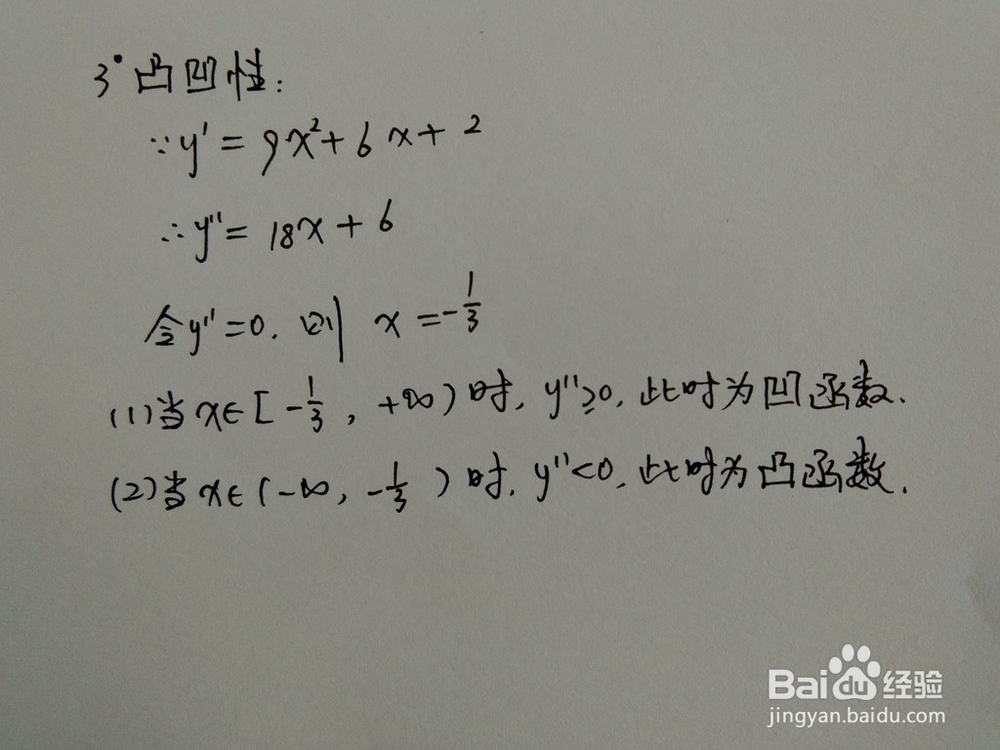 3° 凸凹性:
∵y'=9x²+6x+2
∴y''=18x+6
令y''=0, 则 x=-1/3
(1)当x∈[-1/3, +∞)时, y''≥0, 此时为凹函数.
(2)当x∈(-∞, -1/3)时, y''<0, 此时为凸函数.
Baidu 经验
jingyan.baidu.com